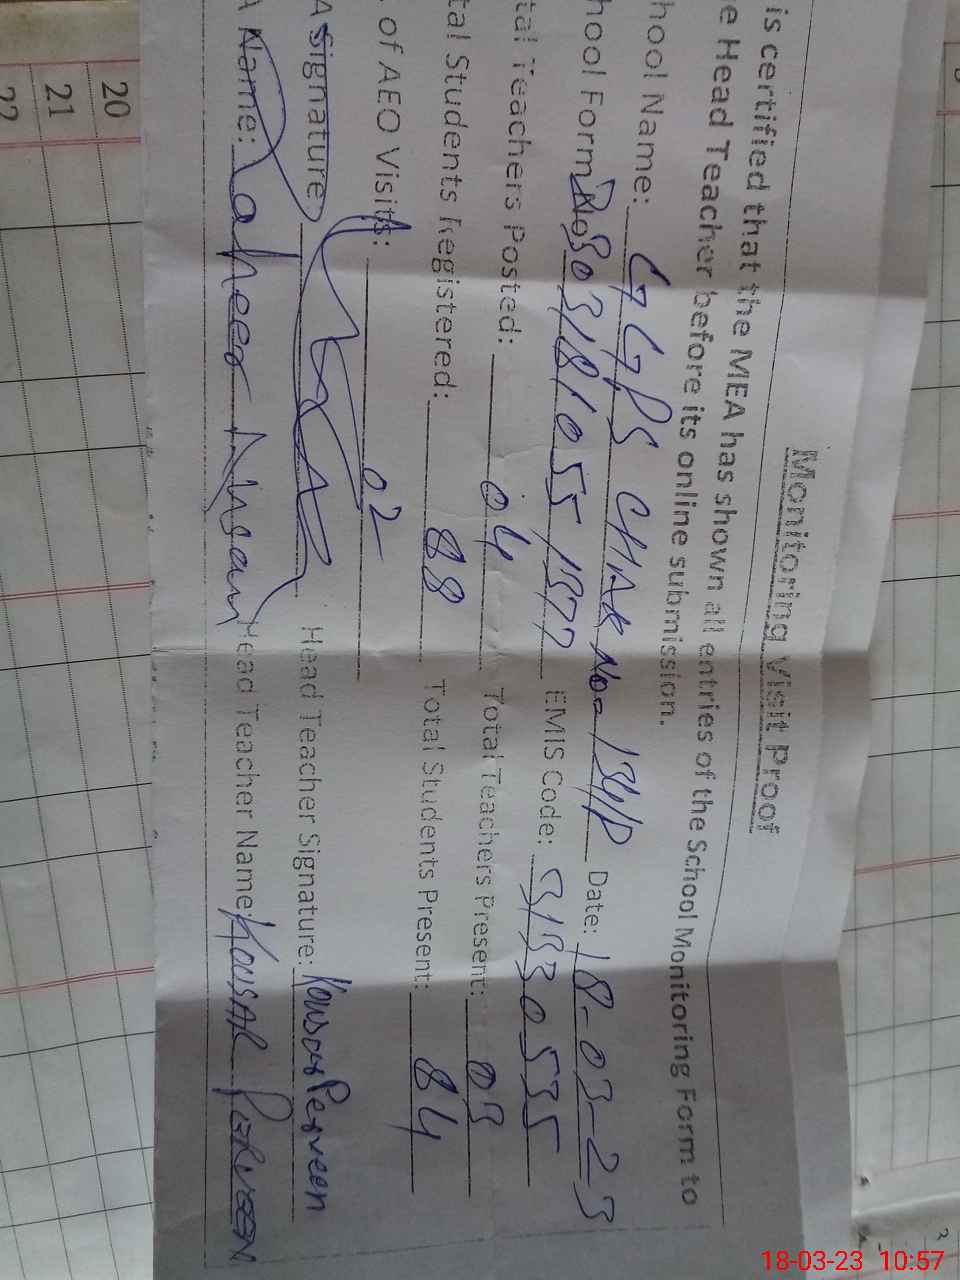 Monitoring Visit Proof
is certified that the MEA has shown all entries of the School Monitoring Form to
e Head Teacher before its online submission.
hool Name: GGPS CHAK No. 134/P Date: 18-03-23
hool Form No. EMIS Code: 31330535
tal Teachers Posted: 04 Total Teachers Present: 03
tal Students Registered: 88 Total Students Present: 84
of AEO Visits: 02
A Signature: Head Teacher Signature: Kousar Perveen
A Name: Zaheer Ahsan Head Teacher Name: KOUSAR PERVEEN
20
21
22
18-03-23 10:57